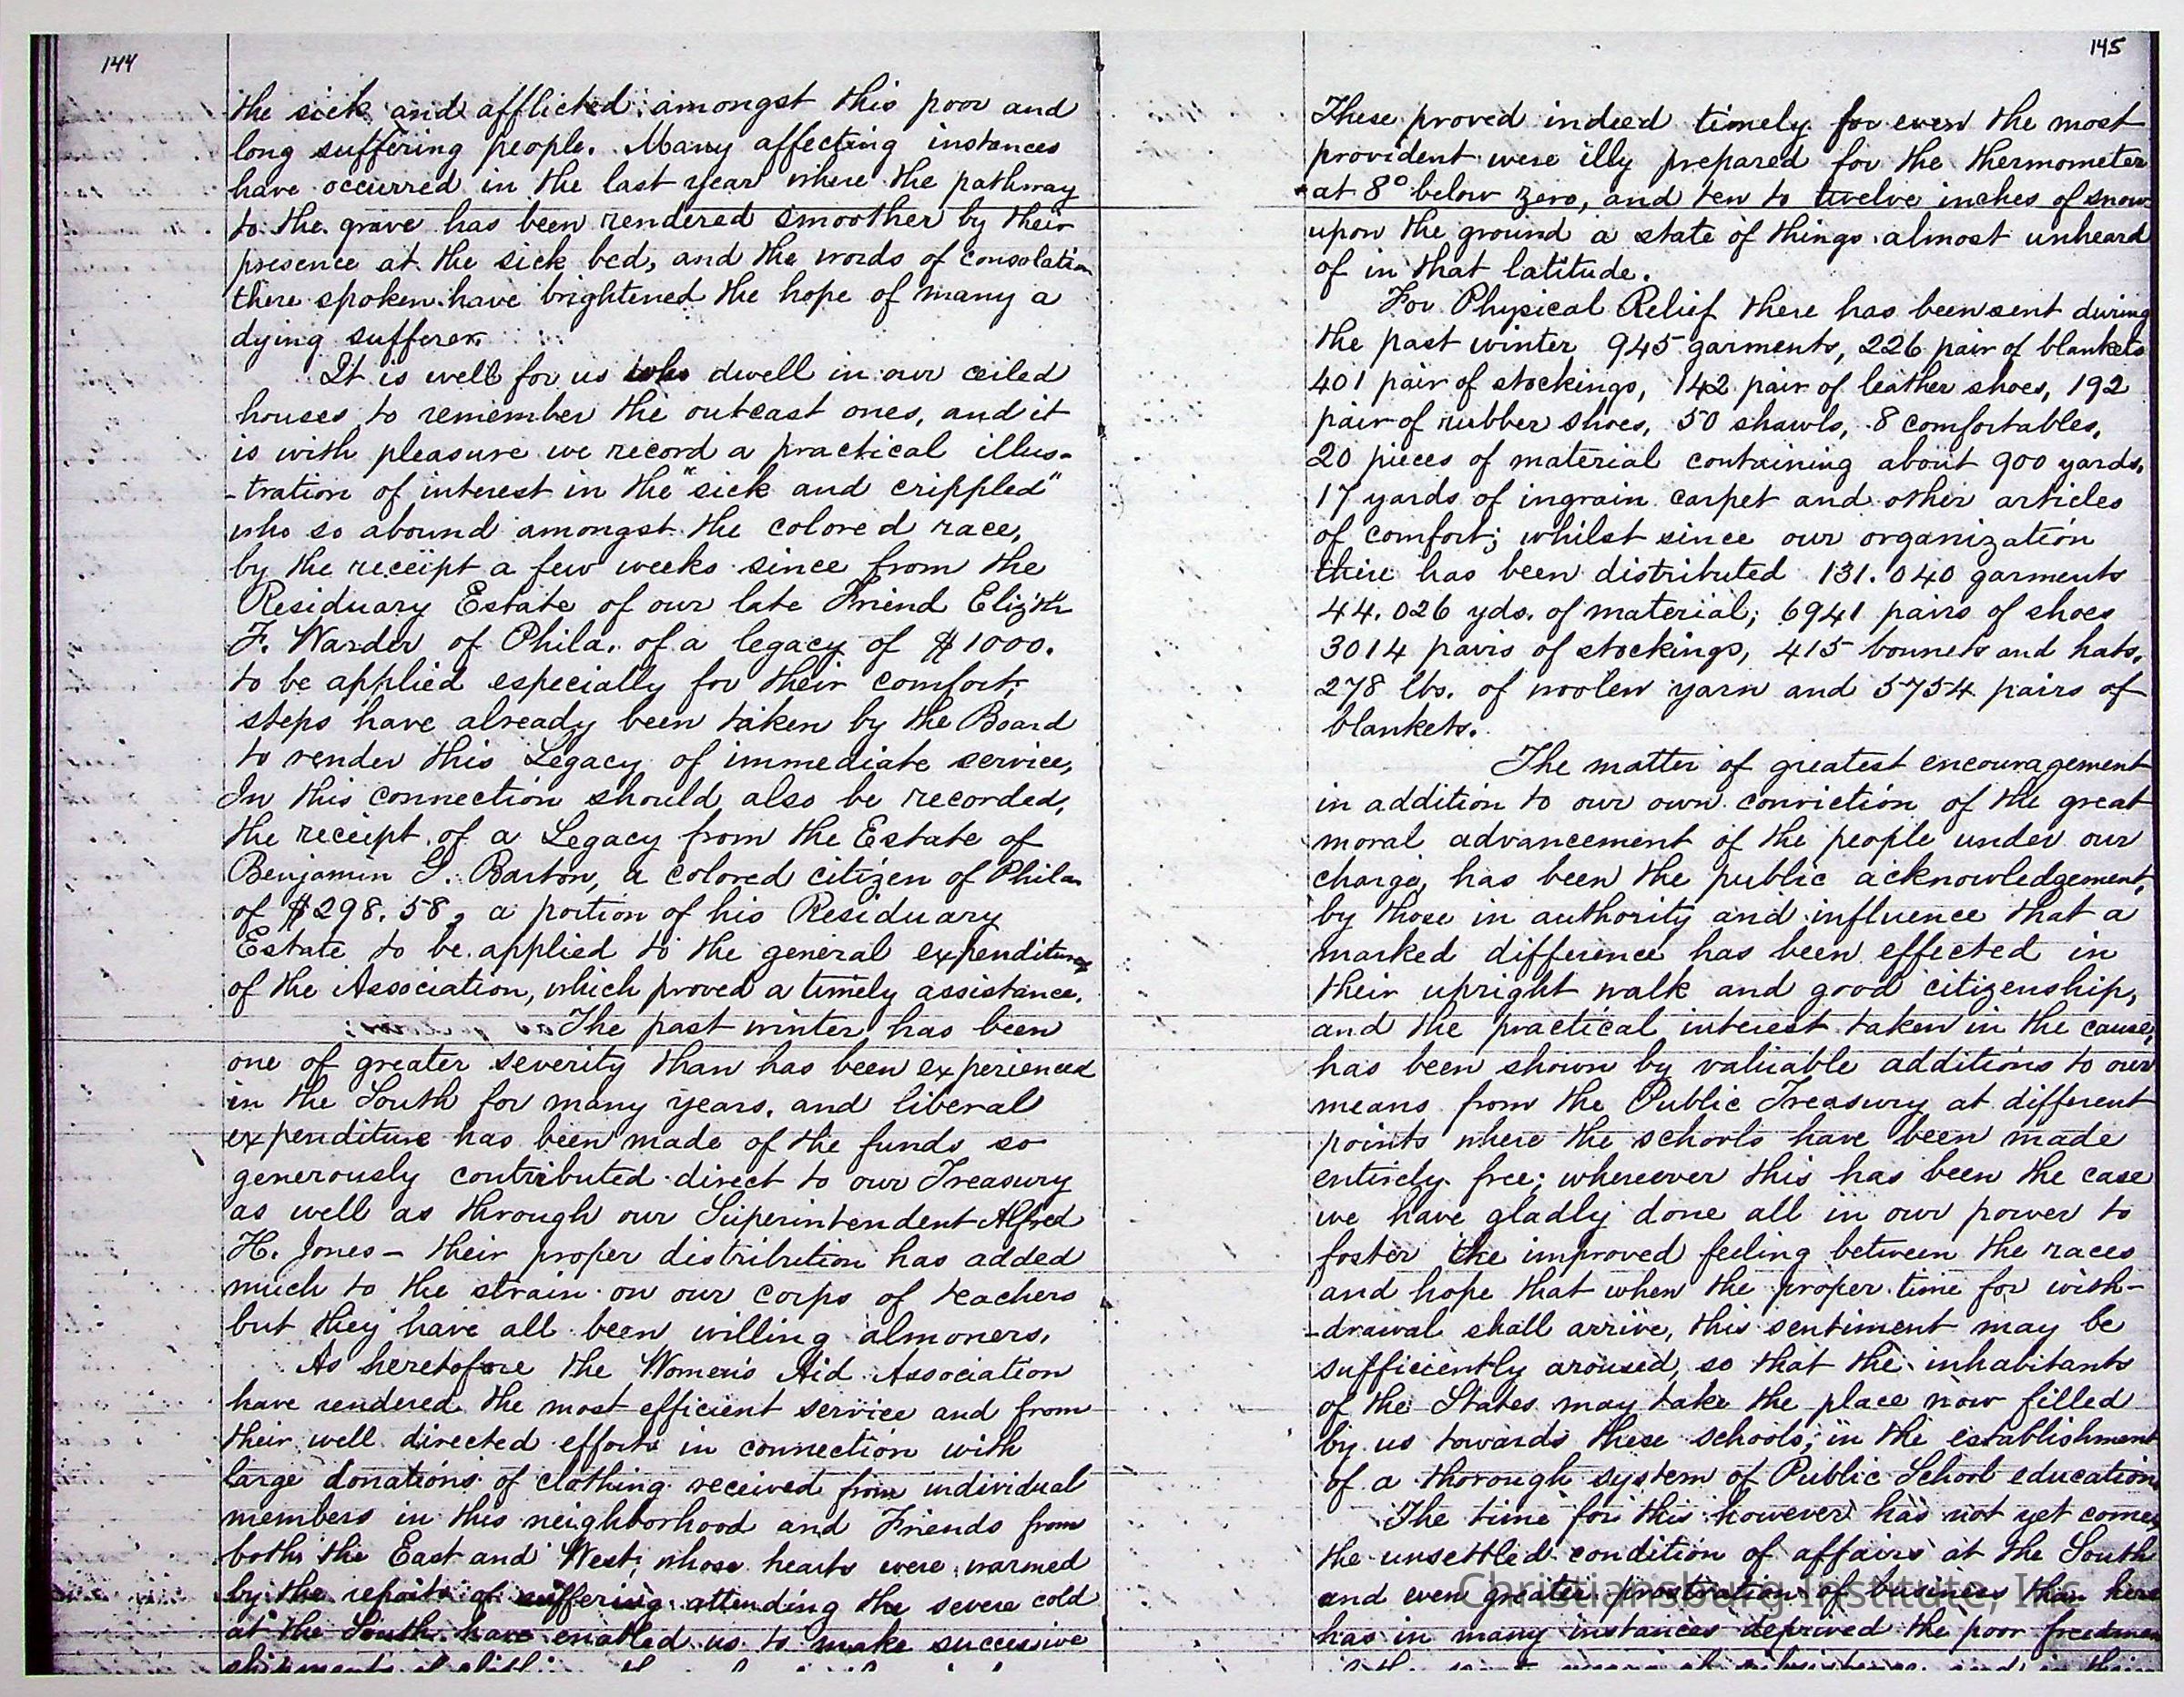 144
the sick and afflicted amongst this poor and
long suffering people. Many affecting instances
have occurred in the last year where the pathway
to the grave has been rendered smoother by their
presence at the sick bed, and the words of consolation
there spoken have brightened the hope of many a
dying sufferer.
It is well for us who dwell in our ceiled
houses to remember the outcast ones, and it
is with pleasure we record a practical illus-
-tration of interest in the "sick and crippled"
who so abound amongst the colored race,
by the receipt a few weeks since from the
Residuary Estate of our late Friend Eliz'th
F. Warder of Phila. of a legacy of $1000.
to be applied especially for their comfort,
steps have already been taken by the Board
to render this Legacy of immediate service,
In this connection should also be recorded,
the receipt of a Legacy from the Estate of
Benjamin G. Barton, a colored citizen of Phila
of $298.58, a portion of his Residuary
Estate to be applied to the general expenditures
of the Association, which proved a timely assistance.
The past winter has been
one of greater severity than has been experienced
in the South for many years, and liberal
expenditure has been made of the funds so
generously contributed direct to our Treasury
as well as through our Superintendent Alfred
H. Jones - their proper distribution has added
much to the strain on our corps of teachers
but they have all been willing almoners.
As heretofore the Women's Aid Association
have rendered the most efficient service and from
their well directed efforts in connection with
large donations of clothing received from individual
members in this neighborhood and Friends from
both the East and West, whose hearts were warmed
by the reports of suffering attending the severe cold
at the South have enabled us to make succesive
145
These proved indeed timely for even the most
provident were illy prepared for the thermometer
at 8° below zero, and ten to twelve inches of snow
upon the ground a state of things almost unheard
of in that latitude.
For Physical Relief there has been sent during
the past winter 945 garments, 226 pair of blankets
401 pair of stockings, 142 pair of leather shoes, 192
pair of rubber shoes, 50 shawls, 8 comfortables,
20 pieces of material containing about 900 yards,
17 yards of ingrain carpet and other articles
of comfort; whilst since our organization
there has been distributed 131.040 garments
44.026 yds. of material; 6941 pairs of shoes
3014 pairs of stockings, 415 bonnets and hats,
278 lbs. of woolen yarn and 5754 pairs of
blankets.
The matter of greatest encouragement
in addition to our own conviction of the great
moral advancement of the people under our
charge, has been the public acknowledgement,
by those in authority and influence that a
marked difference has been effected in
their upright walk and good citizenship,
and the practical interest taken in the cause,
has been shown by valuable additions to our
means from the Public Treasury at different
points where the schools have been made
entirely free; whenever this has been the case
we have gladly done all in our power to
foster the improved feeling between the races
and hope that when the proper time for with-
-drawal shall arrive, this sentiment may be
sufficiently aroused, so that the inhabitants
of the States may take the place now filled
by us towards these schools, in the establishment
of a thorough system of Public School education
The time for this however has not yet come,
the unsettled condition of affairs at the South
and even greater prostration of business than here
has in many instances deprived the poor freedmen
Christiansburg Institute, Inc.